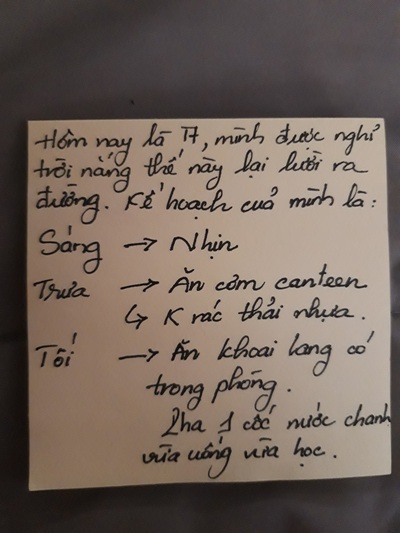 Hôm nay là T7, mình được nghỉ
trời nắng thế này lại lười ra
đường. Kế hoạch của mình là:
Sáng → Nhịn
Trưa → Ăn cơm canteen
↳ K rác thải nhựa.
Tối → Ăn khoai lang có
trong phòng.
Pha 1 cốc nước chanh
vừa uống vừa học.